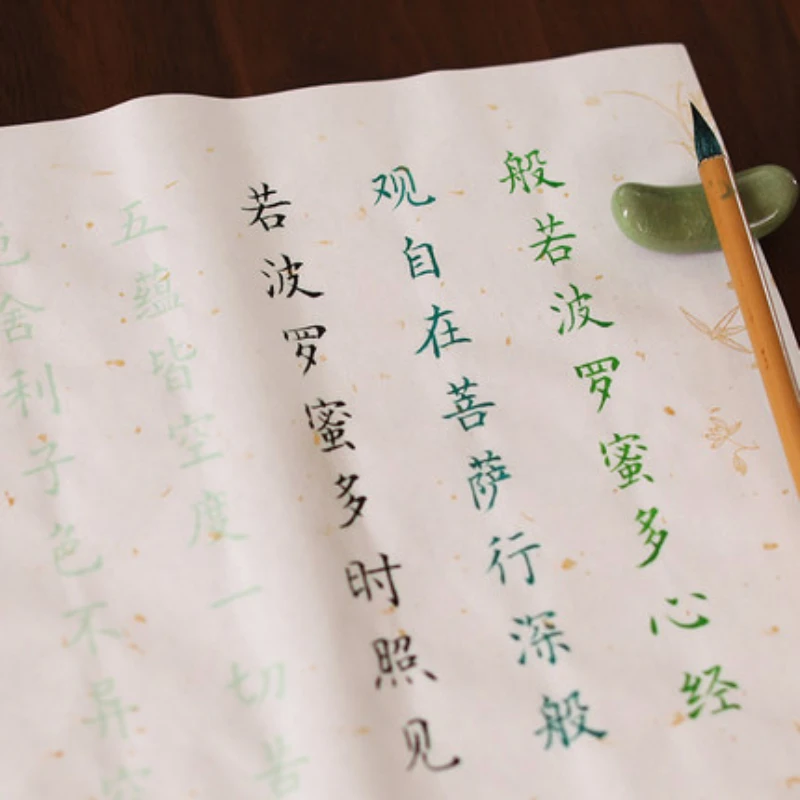 般若波罗蜜多心经
观自在菩萨行深般
若波罗蜜多时照见
五蕴皆空度一切苦
色舍利子色不异空